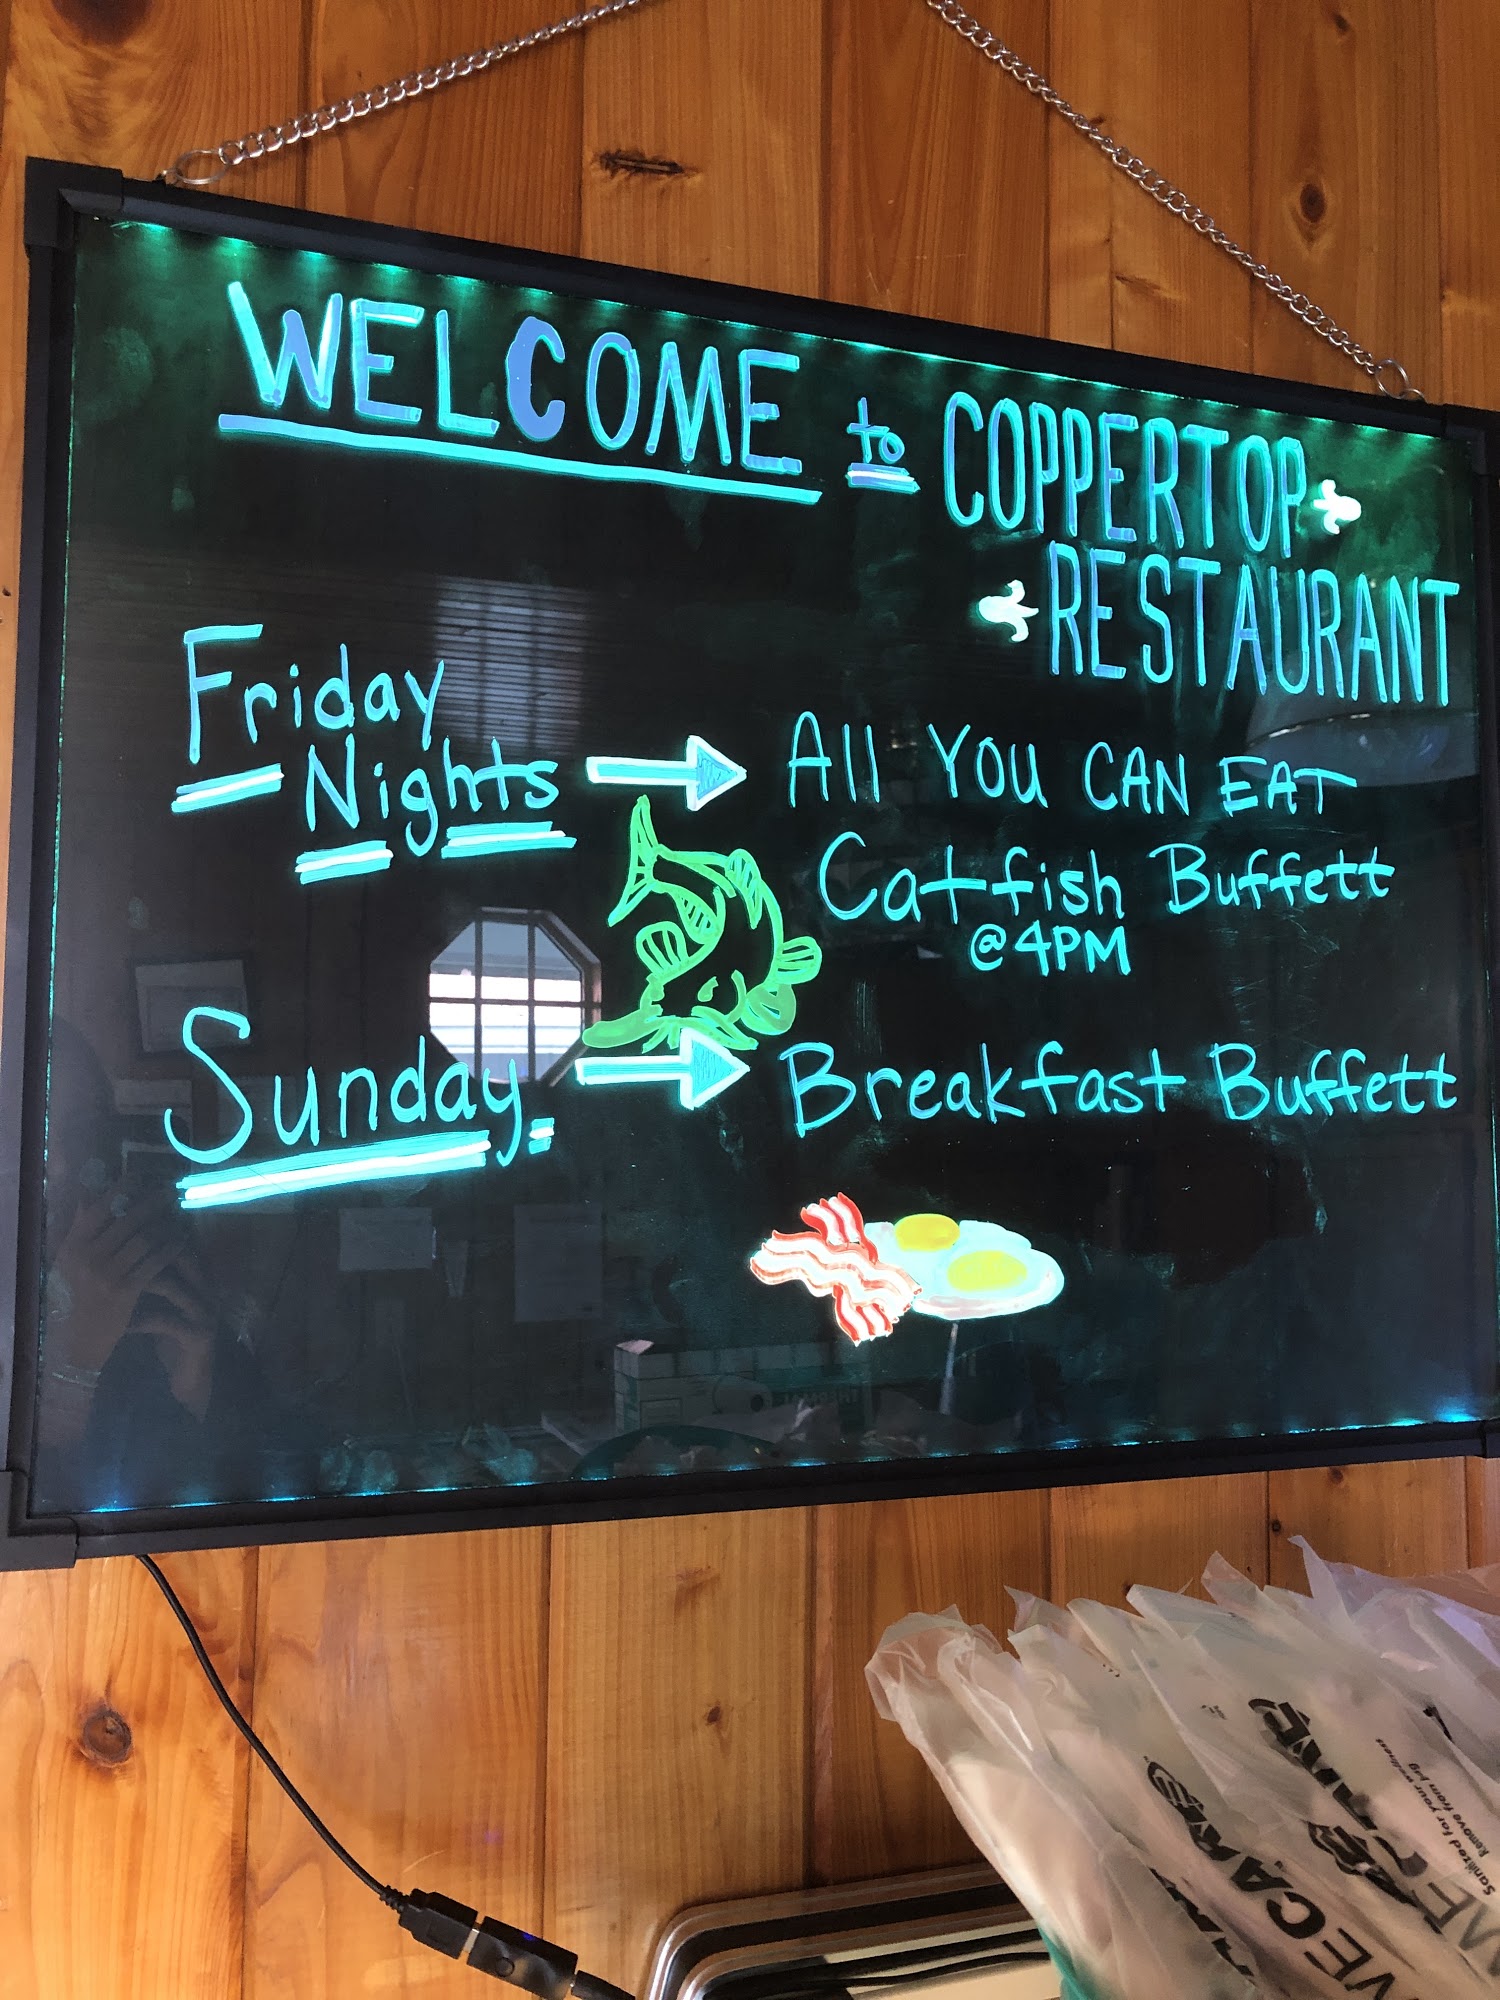 WELCOME to COPPERTOP
RESTAURANT
Friday
Nights
All YOU CAN EAT
Catfish Buffett
@ 4PM
Sunday
Breakfast Buffett
WECARE
Sanitized for your wellness
Remove from jug
WECARE